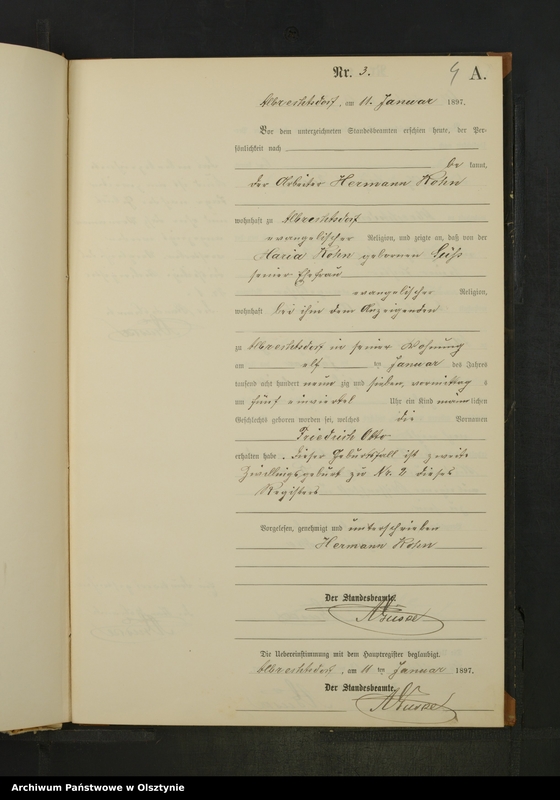 Nr. 3. A.
Albrechtsdorf, am 11. Januar 1897.
Vor dem unterzeichneten Standesbeamten erschien heute, der Per-
sönlichkeit nach
be kannt,
der Arbeiter Hermann Kohn
wohnhaft zu Albrechtsdorf
evangelischer Religion, und zeigte an, daß von der
Maria Kohn gebornen
seiner Ehefrau
evangelischer Religion,
wohnhaft bei ihm dem Anzeigenden
zu Albrechtsdorf in seiner Wohnung
am elf ten Januar des Jahres
tausend acht hundert neun zig und sieben, vormittag s
um fünf einviertel Uhr ein Kind männlichen
Geschlechts geboren worden sei, welches die Vornamen
Friedrich Otto
erhalten habe. Dieser Geburtsfall ist zweite
Zwillingsgeburt zu Nr. 2 dieses
Registers
Vorgelesen, genehmigt und unterschrieben
Hermann Kohn
Der Standesbeamte.
Die Uebereinstimmung mit dem Hauptregister beglaubigt.
Albrechtsdorf, am 11 ten Januar 1897.
Der Standesbeamte.
Archiwum Państwowe w Olsztynie